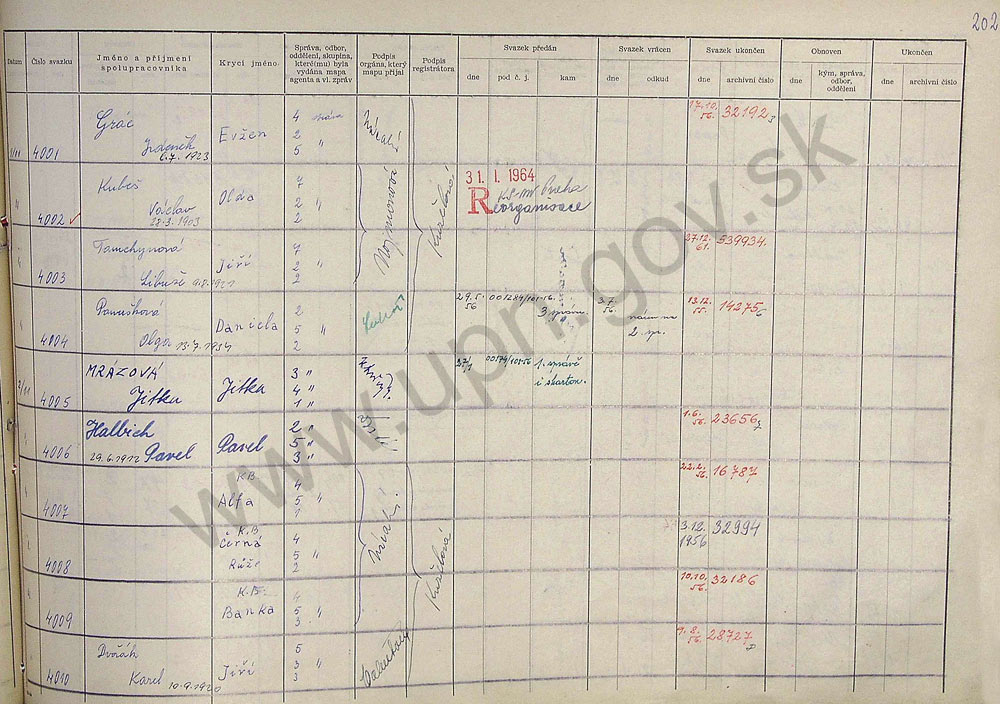 202
Datum
Číslo svazku
Jméno a příjmení
spolupracovníka
Krycí jméno
Správa, odbor,
oddělení, skupina,
které(mu) byla
vydána mapa
agenta a vl. zpráv
Podpis
orgána, který
mapu přijal
Podpis
registrátora
Svazek předán
dne
pod č. j.
kam
Svazek vrácen
dne
odkud
Svazek ukončen
dne
archivní číslo
Obnoven
dne
kým, správa,
odbor,
oddělení
Ukončen
dne
archivní číslo
4001
Grác
Zdeněk
6.7. 1923
Evžen
4 správa
2
5 "
17.10.
56.
32192
4002
Kubeš
Václav
28.3.1903
Olda
7
2 "
2
31. I. 1964
KS-MV Praha
Reorganisace
4003
Tauchynová
Libuše
Jiří
7
2 "
2
27.12.
61.
539934.
4004
Panušková
Olga 13.7.1934
Daniela
2
5 "
2
29.5.
56
001284/101-56.
3 správa
3.7.
56.
2. sp.
13.12.
55.
14275
4005
MRÁZOVÁ
Jitka
Jitka
3 "
4 "
1 "
27/1
00174/101-56
1. správě
i skarton.
4006
Halbich
29.6.1912 Pavel
Pavel
2 "
5 "
3 "
1.6.
56.
23656
4007
KB
Alfa
4
5 "
1
22.2.
56.
16787
4008
K.B
Černá
Růže
4
5 "
2
3.12.
1956
32994
4009
K.B.
Banka
4
5 "
3
10.10.
56.
32186
4010
Dvořák
Karel 10.9.1920
Jiří
5
3 "
3
9.8.
56.
28727
Kurělová
www.upn.gov.sk